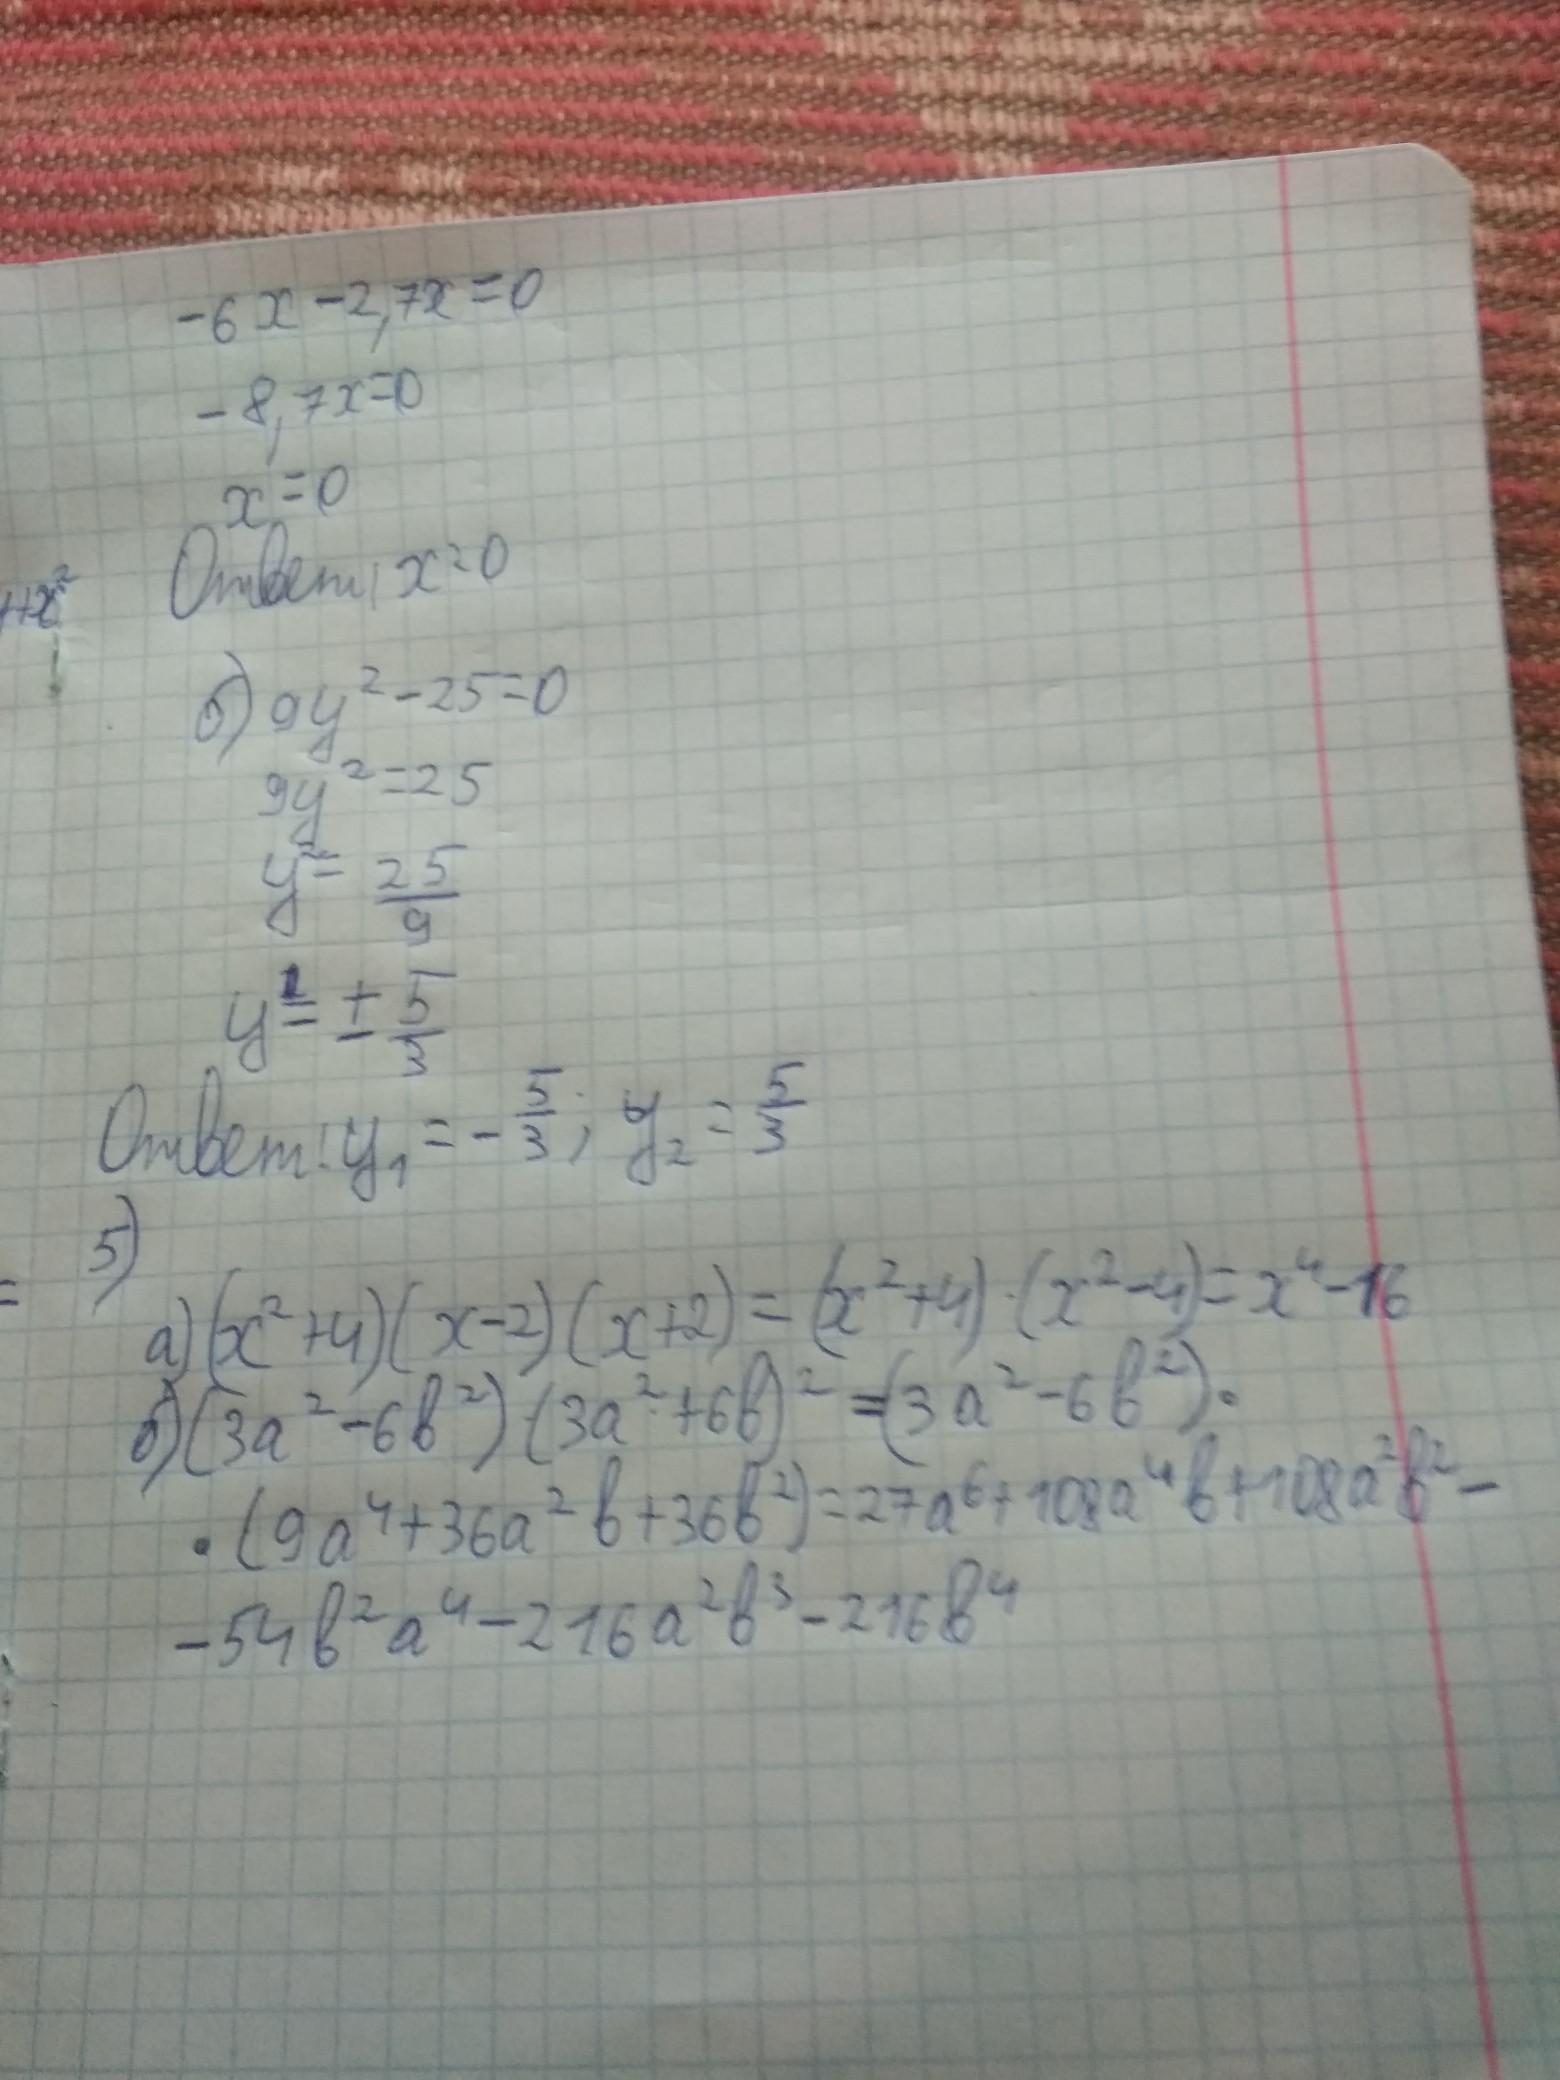 -6x-2,7x=0
-8,7x=0
x=0
Ответ: x=0
+x²
б) 9y²-25=0
9y²=25
y²= 25/9
y1= ± 5/3
Ответ: y₁=-5/3; y₂=5/3
5)
=
а)(x²+4)(x-2)(x+2)=(x²+4)·(x²-4)=x⁴-16
б)(3a²-6b²)·(3a²+6b)²=(3a²-6b²)·
·(9a⁴+36a²b+36b²)=27a⁶+108a⁴b+108a²b²-
-54b²a⁴-216a²b³-216b⁴